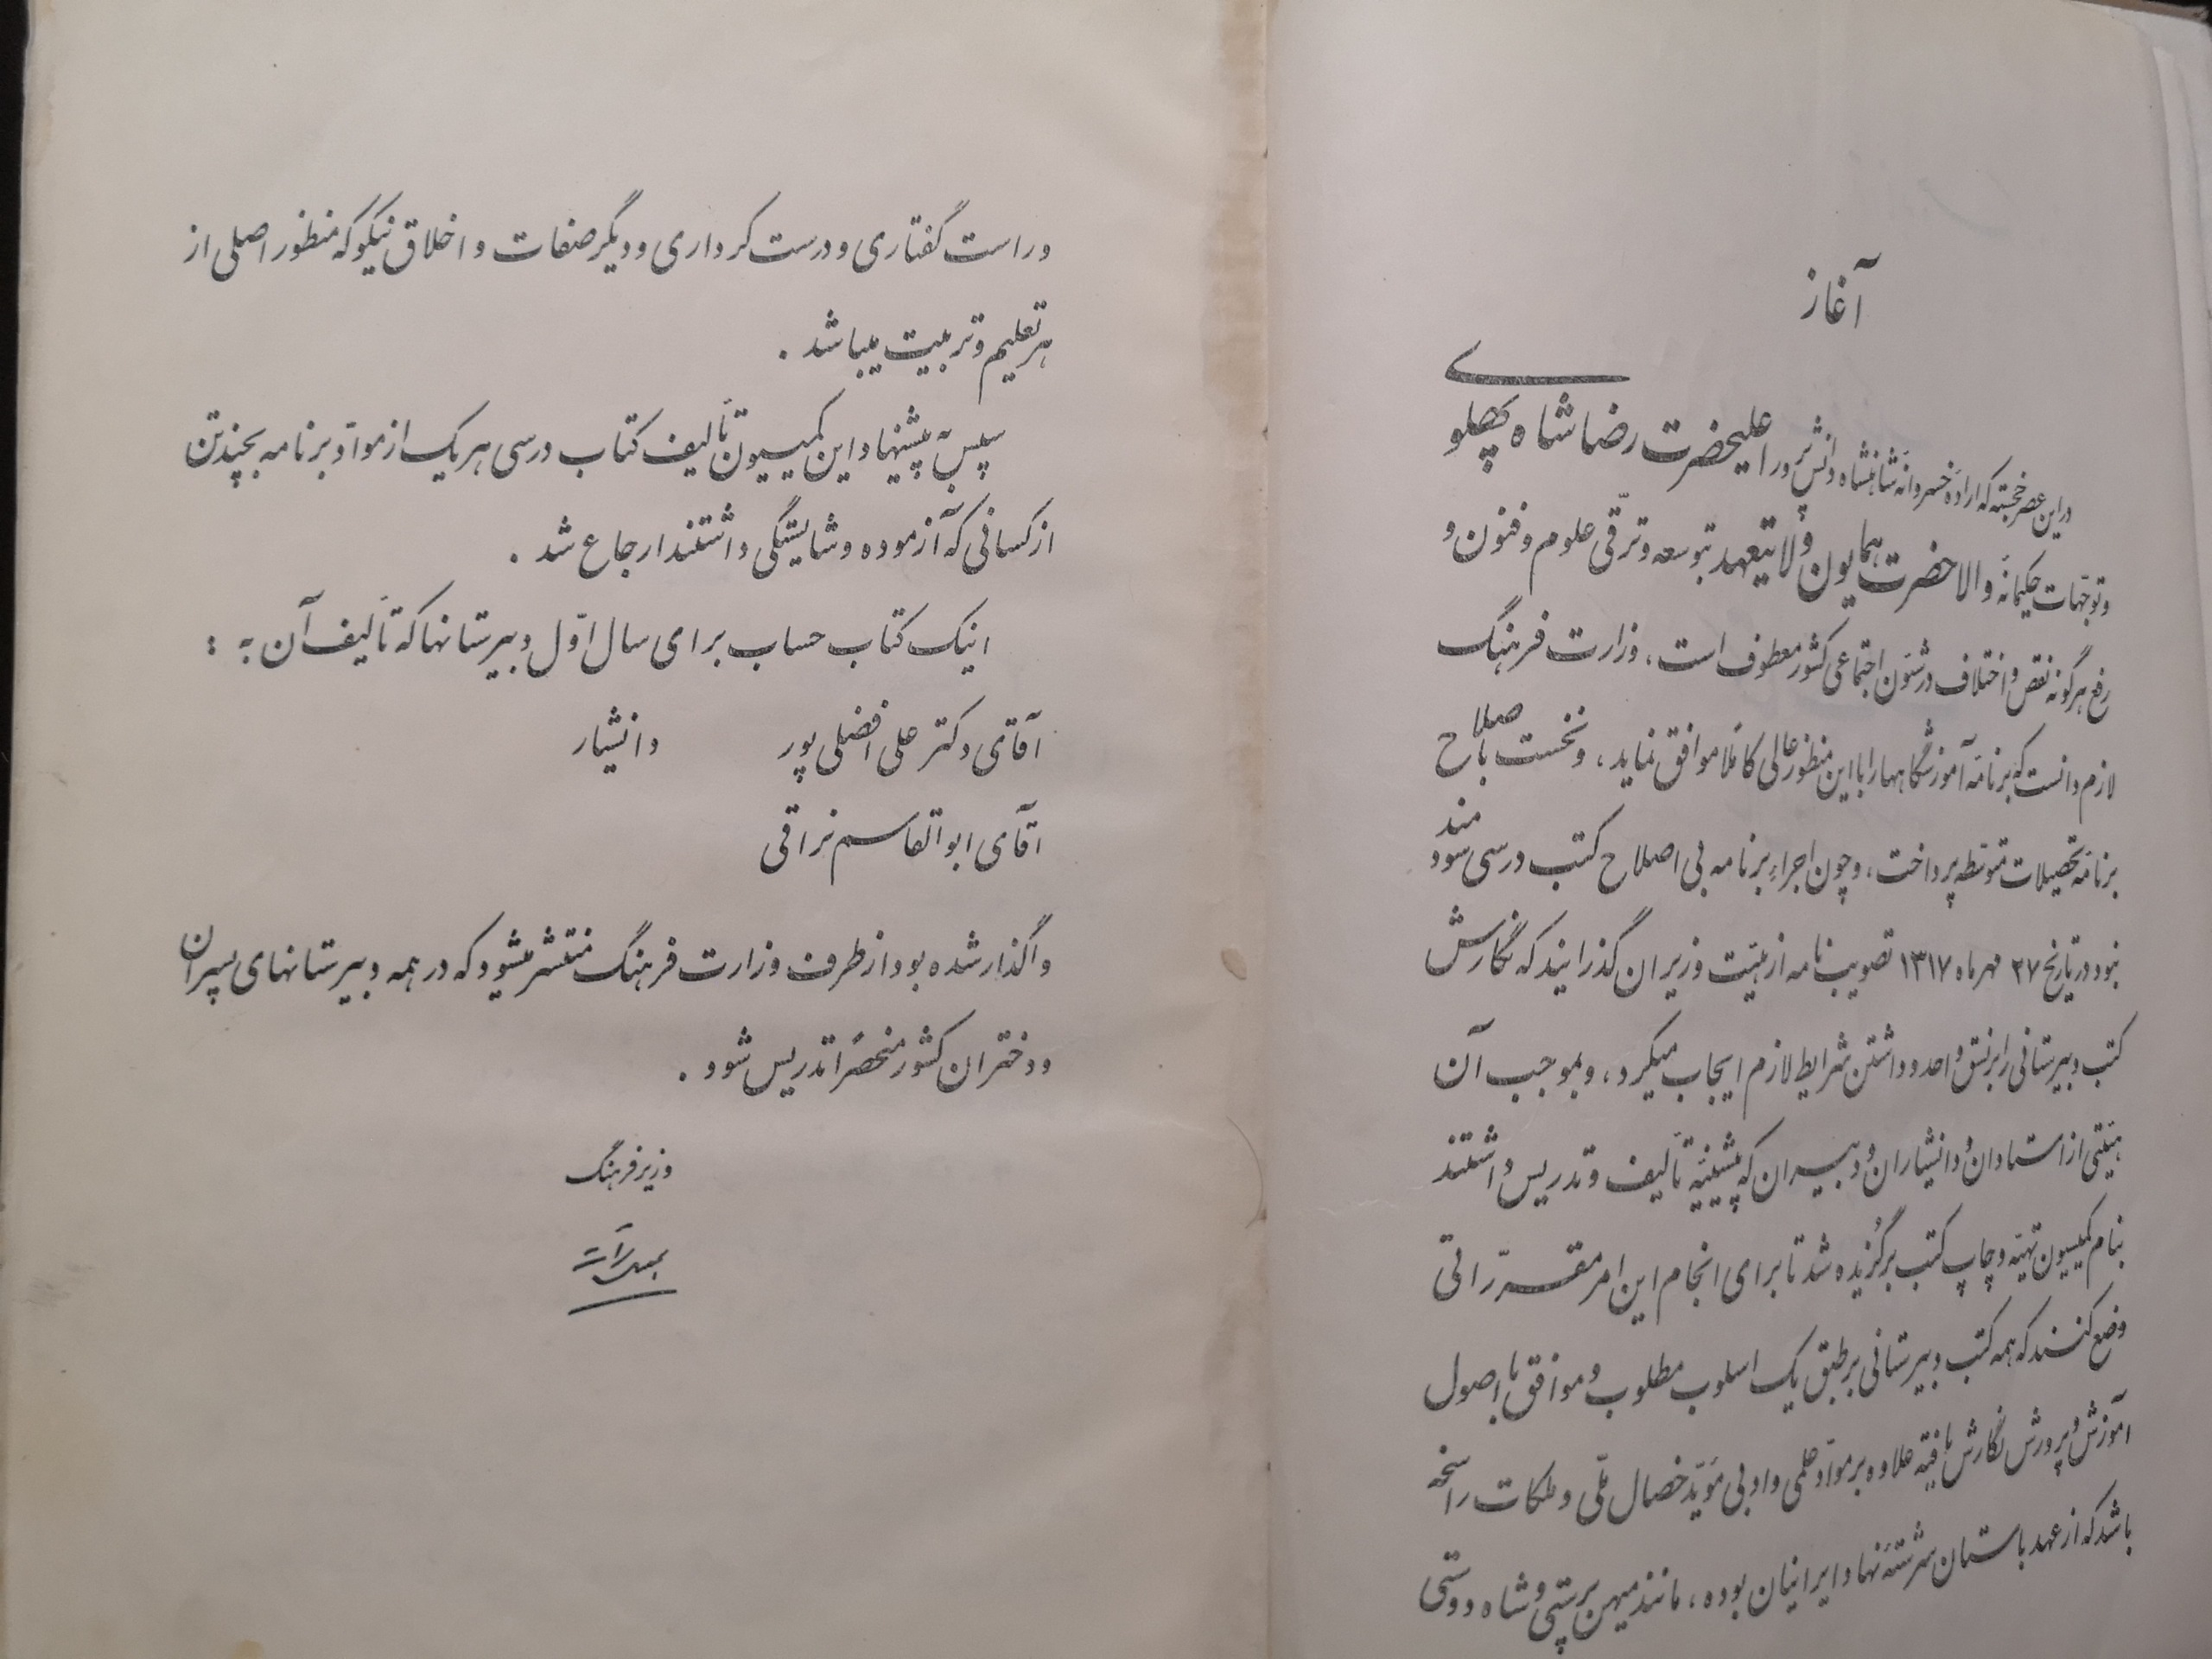 آغاز
در این عصر خجسته که ارادهٔ خسروانهٔ شاهنشاه دانش پرور اعلیحضرت رضا شاه پهلوی
و توجّهات حکیمانهٔ والاحضرت همایون ولایتعهد بتوسعه و ترقّی علوم و فنون و
رفع هرگونه نقص و اختلاف در شئون اجتماعی کشور معطوف است، وزارت فرهنگ
لازم دانست که برنامهٔ آموزشگاهها را با این منظور عالی کاملاً موافق نماید، و نخست باصلاح
برنامهٔ تحصیلات متوسّطه پرداخت، و چون اجراء برنامه بی اصلاح کتب درسی سودمند
نبود در تاریخ ۲۷ مهرماه ۱۳۱۷ تصویب نامه از هیئت وزیران گذرانید که نگارش
کتب دبیرستانی را بر نسق واحد و داشتن شرایط لازم ایجاب میکرد، و بموجب آن
هیئتی از استادان و دانشیاران و دبیران که پیشینهٔ تألیف و تدریس داشتند
بنام کمیسیون تهیّه و چاپ کتب برگزیده شد تا برای انجام این امر مقرّراتی
وضع کنند که همه کتب دبیرستانی بر طبق یک اسلوب مطلوب و موافق با اصول
آموزش و پرورش نگارش یافته علاوه بر موادّ علمی و ادبی مؤیّد خصال ملّی و ملکات راسخه
باشد که از عهد باستان سرشتهٔ نهاد ایرانیان بوده، مانند میهن پرستی و شاه دوستی
و راست گفتاری و درست کرداری و دیگر صفات و اخلاق نیکو که منظور اصلی از
هر تعلیم و تربیت میباشد.
سپس به پیشنهاد این کمیسیون تألیف کتاب درسی هر یک از موادّ برنامه بچند تن
از کسانی که آزموده و شایستگی داشتند ارجاع شد.
اینک کتاب حساب برای سال اوّل دبیرستانها که تألیف آن به:
آقای دکتر علی افضلی پور دانشیار
آقای ابوالقاسم نراقی
واگذار شده بود از طرف وزارت فرهنگ منتشر میشود که در همه دبیرستانهای پسران
و دختران کشور منحصراً تدریس شود.
وزیر فرهنگ